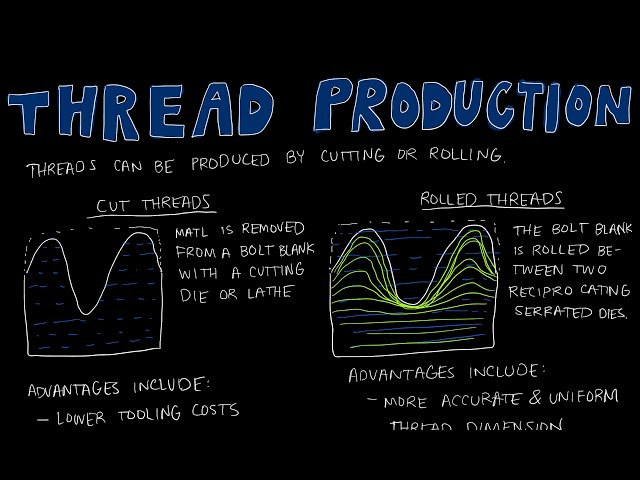 THREAD PRODUCTION
THREADS CAN BE PRODUCED BY CUTTING OR ROLLING.
CUT THREADS
MATL IS REMOVED
FROM A BOLT BLANK
WITH A CUTTING
DIE OR LATHE
ADVANTAGES INCLUDE:
- LOWER TOOLING COSTS
ROLLED THREADS
THE BOLT BLANK
IS ROLLED BE-
TWEEN TWO
RECIPRO CATING
SERRATED DIES.
ADVANTAGES INCLUDE:
- MORE ACCURATE & UNIFORM
THREAD DIMENSION